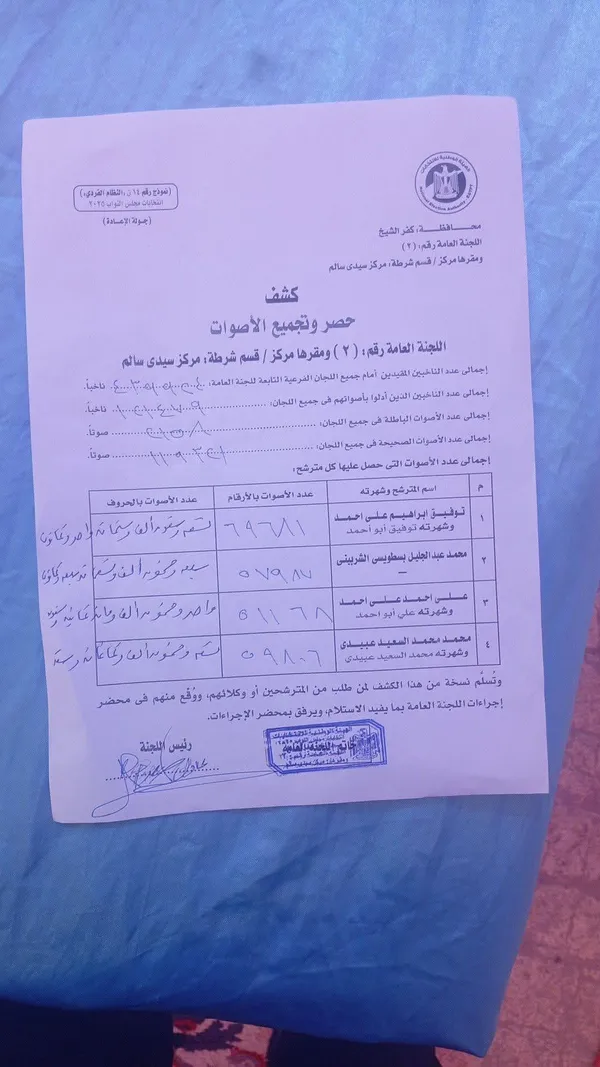 الهيئة الوطنية للانتخابات
National Election Authority - EGYPT
(نموذج رقم ١٤ ن، النظام الفردى،)
انتخابات مجلس النواب ٢٠٢٥
(جولة الإعادة)
محافظة: كفر الشيخ
اللجنة العامة رقم: (٢)
ومقرها مركز / قسم شرطة: مركز سيدى سالم
كشف
حصر وتجميع الأصوات
اللجنة العامة رقم: (٢) ومقرها مركز / قسم شرطة: مركز سيدى سالم
إجمالى عدد الناخبين المقيدين أمام جميع اللجان الفرعية التابعة للجنة العامة: ناخباً.
إجمالى عدد الناخبين الذين أدلوا بأصواتهم فى جميع اللجان: ناخباً.
إجمالى عدد الأصوات الباطلة فى جميع اللجان: صوتاً.
إجمالى عدد الأصوات الصحيحة فى جميع اللجان: صوتاً.
إجمالى عدد الأصوات التى حصل عليها كل مترشح:
م اسم المترشح وشهرته عدد الأصوات بالأرقام عدد الأصوات بالحروف
١ توفيق ابراهيم على احمد ٦٩٦٨١ تسعة وستون ألف وستمائة واحد وثمانون
وشهرته توفيق أبو احمد
٢ محمد عبدالجليل بسطويسى الشربينى ٥٧٩٨٧ سبعة وخمسون ألف وتسعمائة سبعة وثمانون
—
٣ على احمد على احمد ٥١١٦٨ واحد وخمسون ألف ومائة ثمانية وستون
وشهرته علي أبو احمد
٤ محمد محمد السعيد عبيدى ٥٩٨٠٦ تسعة وخمسون ألف وثمانمائة وستة
وشهرته محمد السعيد عبيدى
وتُسلَّم نسخة من هذا الكشف لمن طلب من المترشحين أو وكلائهم، ووُقِّع منهم فى محضر
إجراءات اللجنة العامة بما يفيد الاستلام، ويرفق بمحضر الإجراءات.
رئيس اللجنة
خاتم اللجنة العامة
الهيئة الوطنية للانتخابات